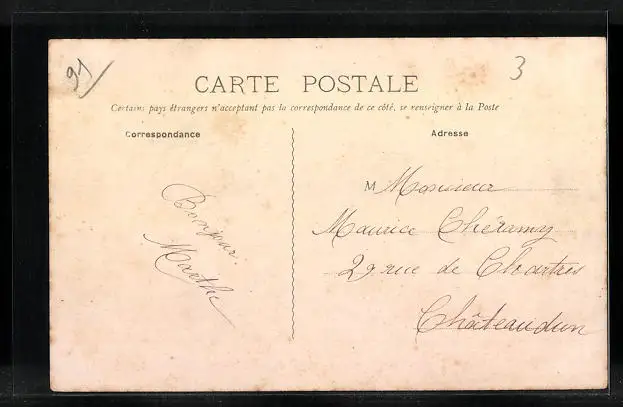 91/
3
CARTE POSTALE
Certains pays étrangers n'acceptant pas la correspondance de ce côté, se renseigner à la Poste
Correspondance
Adresse
Bonjour
Marthe
M Monsieur
Maurice Chéramy
29 rue de Chartres
Châteaudun